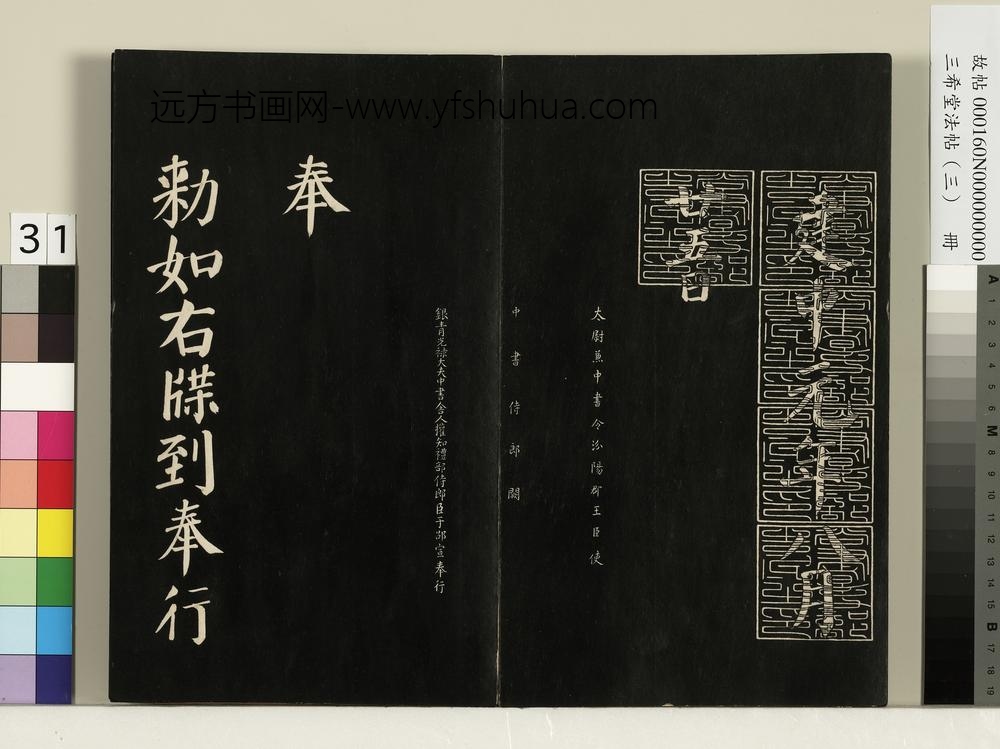 远方书画网-www.yfshuhua.com
故帖 000160N000000000
三希堂法帖（三） 冊
建中元年八月
廿五日
太尉兼中書令汾陽郡王臣使
中書侍郎闕
銀青光祿大夫中書舍人權知禮部侍郎臣于邵宣奉行
奉
勅如右牒到奉行
31
A 1 2 3 4 5 6 M 8 9 10 11 12 13 14 15 B 17 18 19